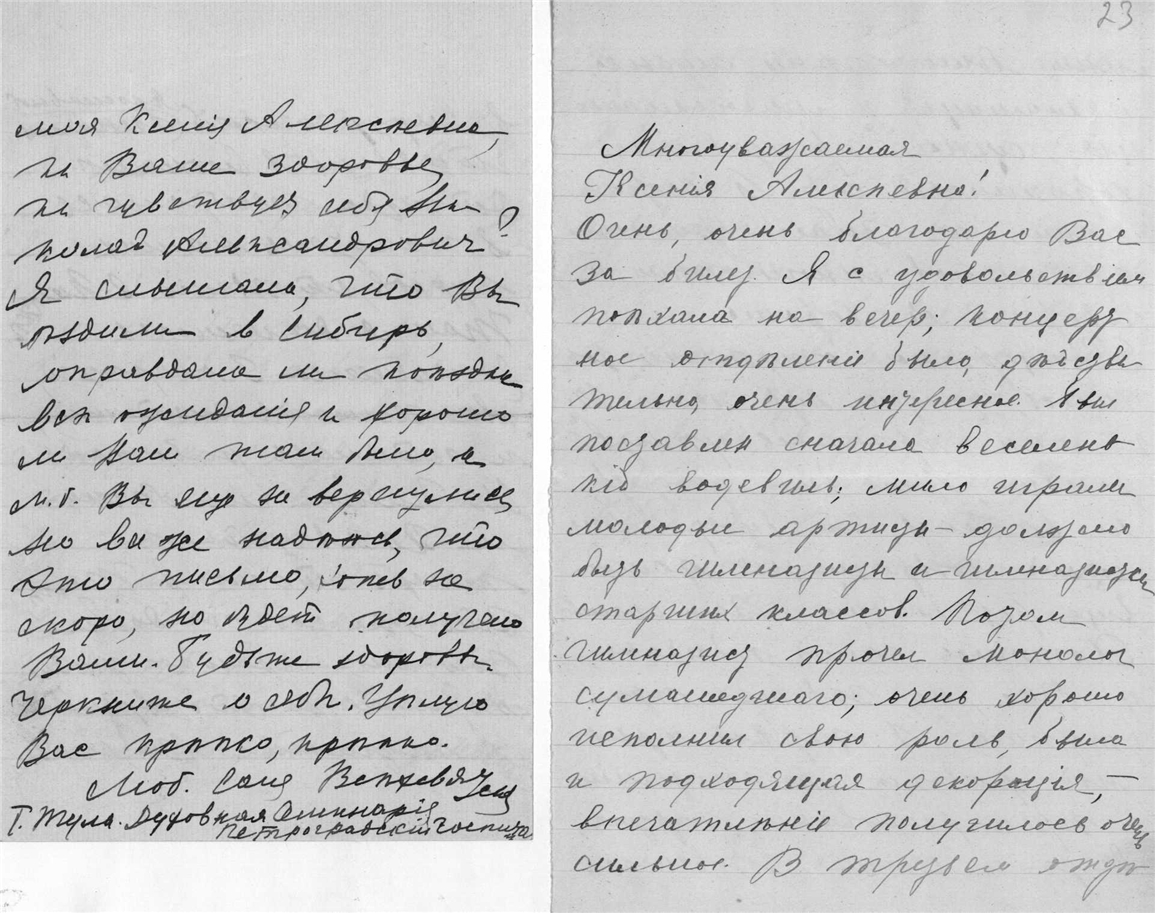 моя Ксенія Алексѣевна,
Ваше здоровье,
чувствуетъ себя
Александрович?
Я слышала, что Вы
ѣздили в Сибирь,
оправдала ли поѣздка
всѣ ожиданія и хорошо
ли Вам там было, а
м. б. Вы еще не вернулись
но все же надѣюсь, что
это письмо, хотя не
скоро, но будет получено
Вами. Будьте здоровы
черкните о себѣ. Цѣлую
Вас крѣпко, крѣпко.
Люб. Саня
Г. Тула. Духовная Семинарія
Петроградскій госпиталь
23
Многоуважаемая
Ксенія Алексѣевна!
Очень, очень благодарю Вас
за билет. Я с удовольствіем
поѣхала на вечер; концерт
ное отдѣленіе было, дѣйстви
тельно, очень интересное. Был
поставлен сначала веселень
кій водевиль; мило играли
молодые артисты – должно
быть гимназисты и гимназистки
старших классов. Потом
гимназист прочел монолог
сумашедшаго; очень хорошо
исполнил свою роль, была
и подходящая декорація, –
впечатлѣніе получилось очень
сильное. В третьем отдѣ